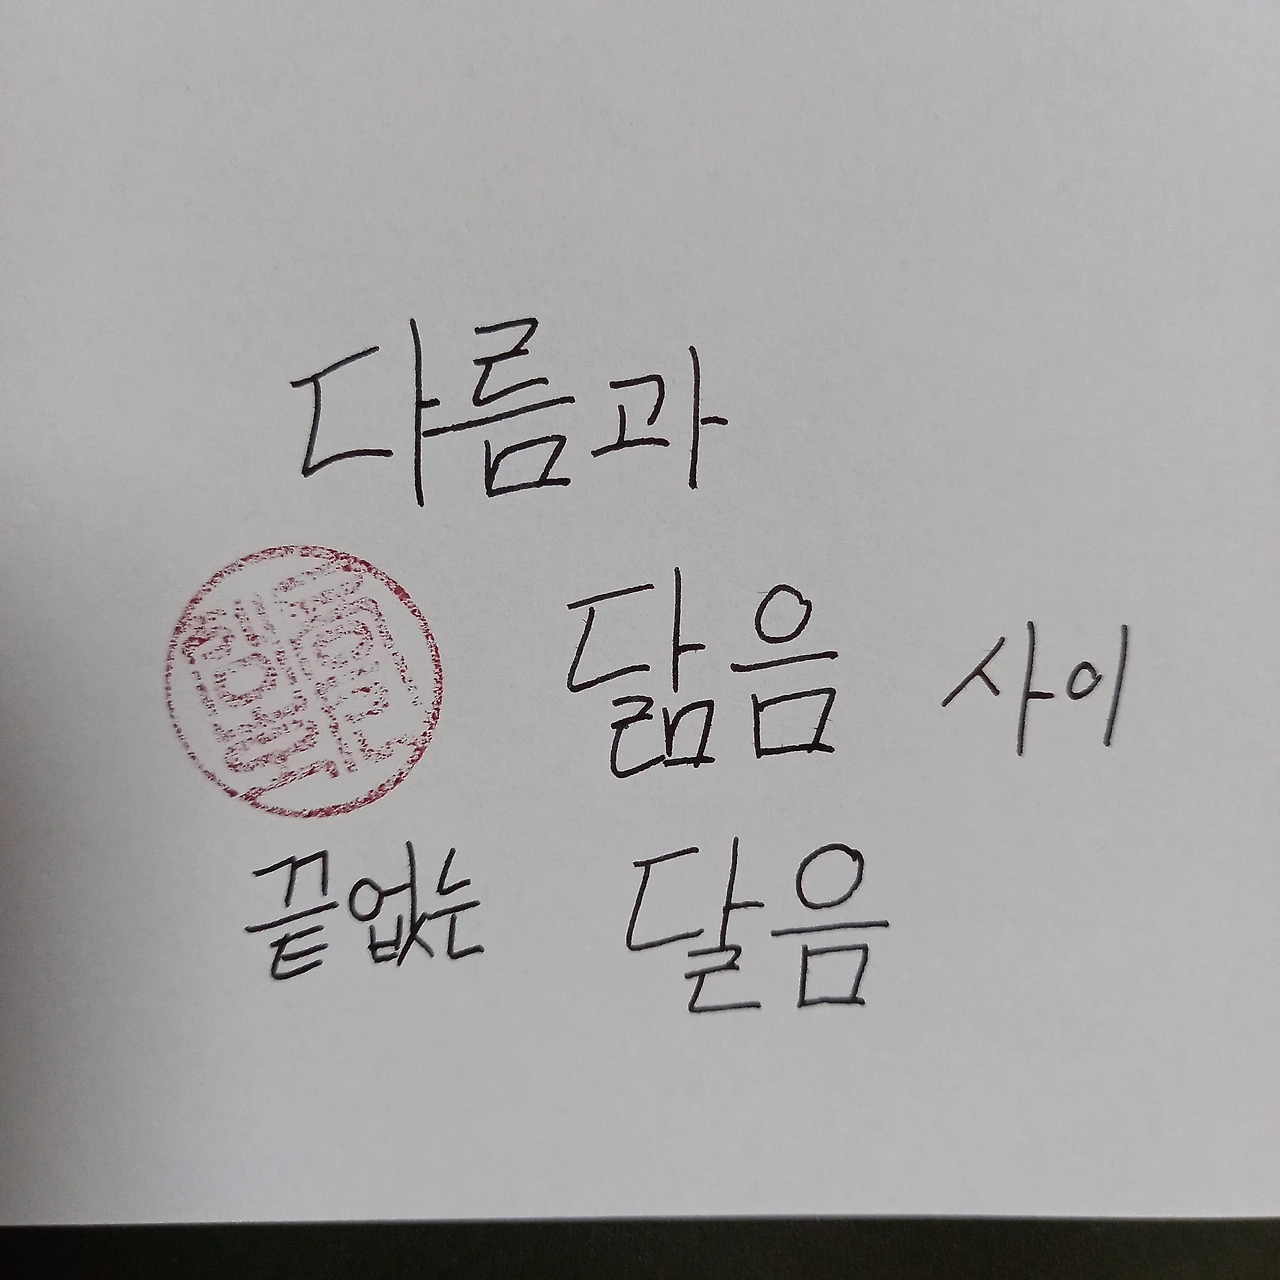 다름과
닮음 사이
끝없는 달음